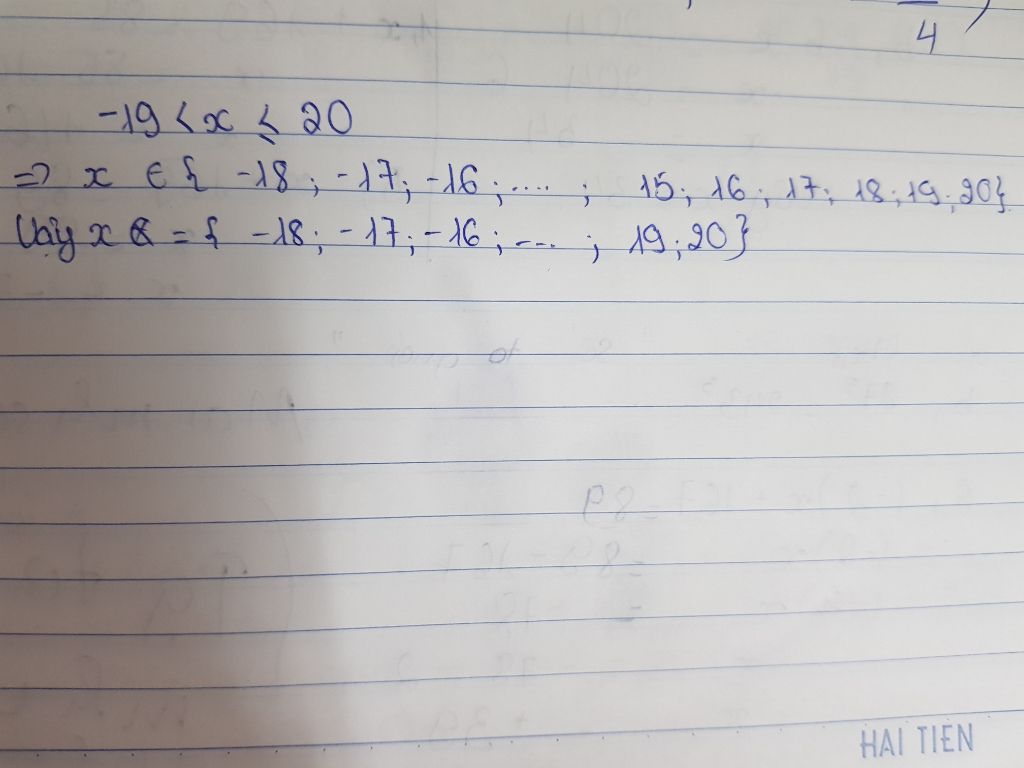 4 )
-19 < x ≤ 20
=> x ∈ { -18 ; -17 ; -16 ; .... ; 15 ; 16 ; 17 ; 18 ; 19 ; 20 }
Vậy x = { -18 ; -17 ; -16 ; ... ; 19 ; 20 }
HAI TIEN